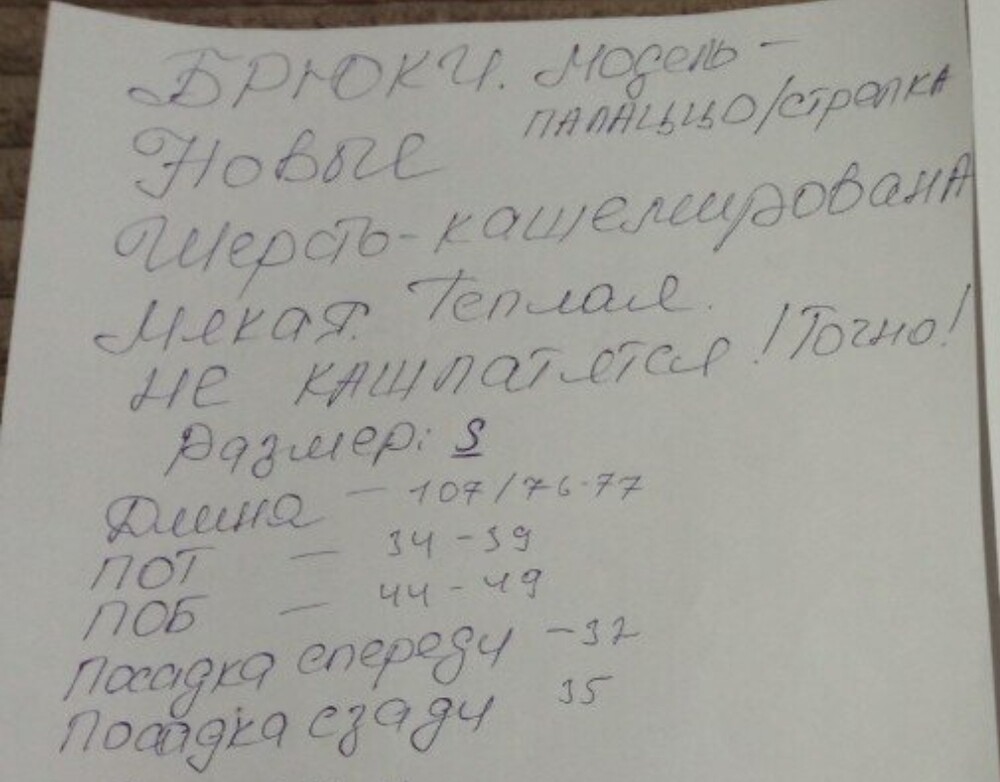 БРЮКИ. Модель -
ПАЛАЦЦО/стрелка
Новые
Шерсть-кашемирована
Мякая. Теплая.
НЕ КАШЛАТЯТСЯ! Точно!
Размер: S
Длина - 107/76-77
ПОТ - 34-39
ПОБ - 44-49
Посадка спереди - 32
Посадка сзади 35